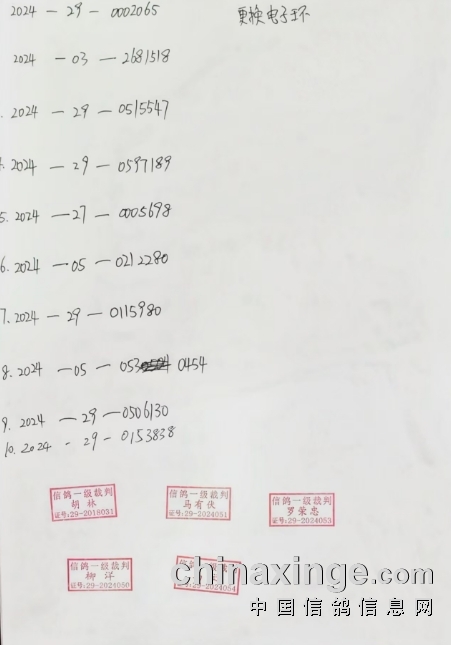 2024-29-0002065 更换电子环
2024-03-2681518
2024-29-0515547
2024-29-0597189
5. 2024-27-0005698
6. 2024-05-0212280
7. 2024-29-0115980
8. 2024-05-053 0454
9. 2024-29-0506130
10. 2024-29-0153838
信鸽一级裁判
胡林
证号:29-2018031
信鸽一级裁判
马有伏
证号:29-2024051
信鸽一级裁判
罗荣忠
证号:29-2024053
信鸽一级裁判
柳洋
证号:29-2024050
信鸽
裁判
29-2024054
chinaxinge.com
中国信鸽信息网